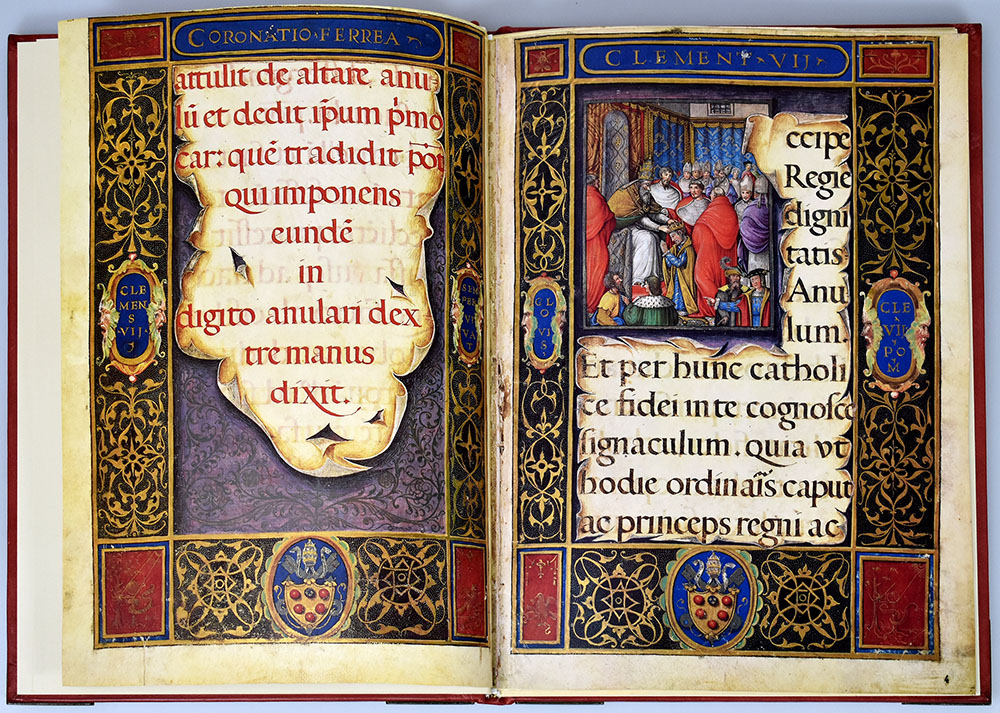 CORONATIO FERREA
attulit de altare anu-
lū et dedit ip̄um p̄mo
car: quē tradidit pōt
qui imponens
eundē
in
digito anulari dex-
tre manus
dixit.
CLE
MENS
VIJ
SEM
PER
VI
VAT
CLEMENT · VIJ
ccipe
Regie
digni
tatis
Anu
lum.
Et per hunc catholi
ce fidei in te cognosce
signaculum. quia vt
hodie ordinar̄s caput
ac princeps regni ac
CLO
VIS
CLE
VIJ
PO M
4